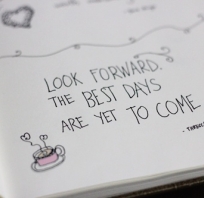 LOOK FORWARD.
THE BEST DAYS
ARE YET TO COME